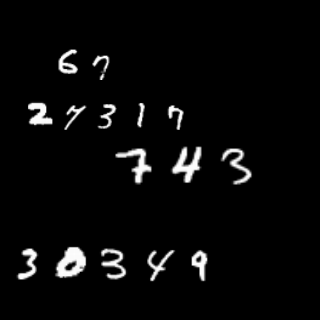 67
27317
743
30349